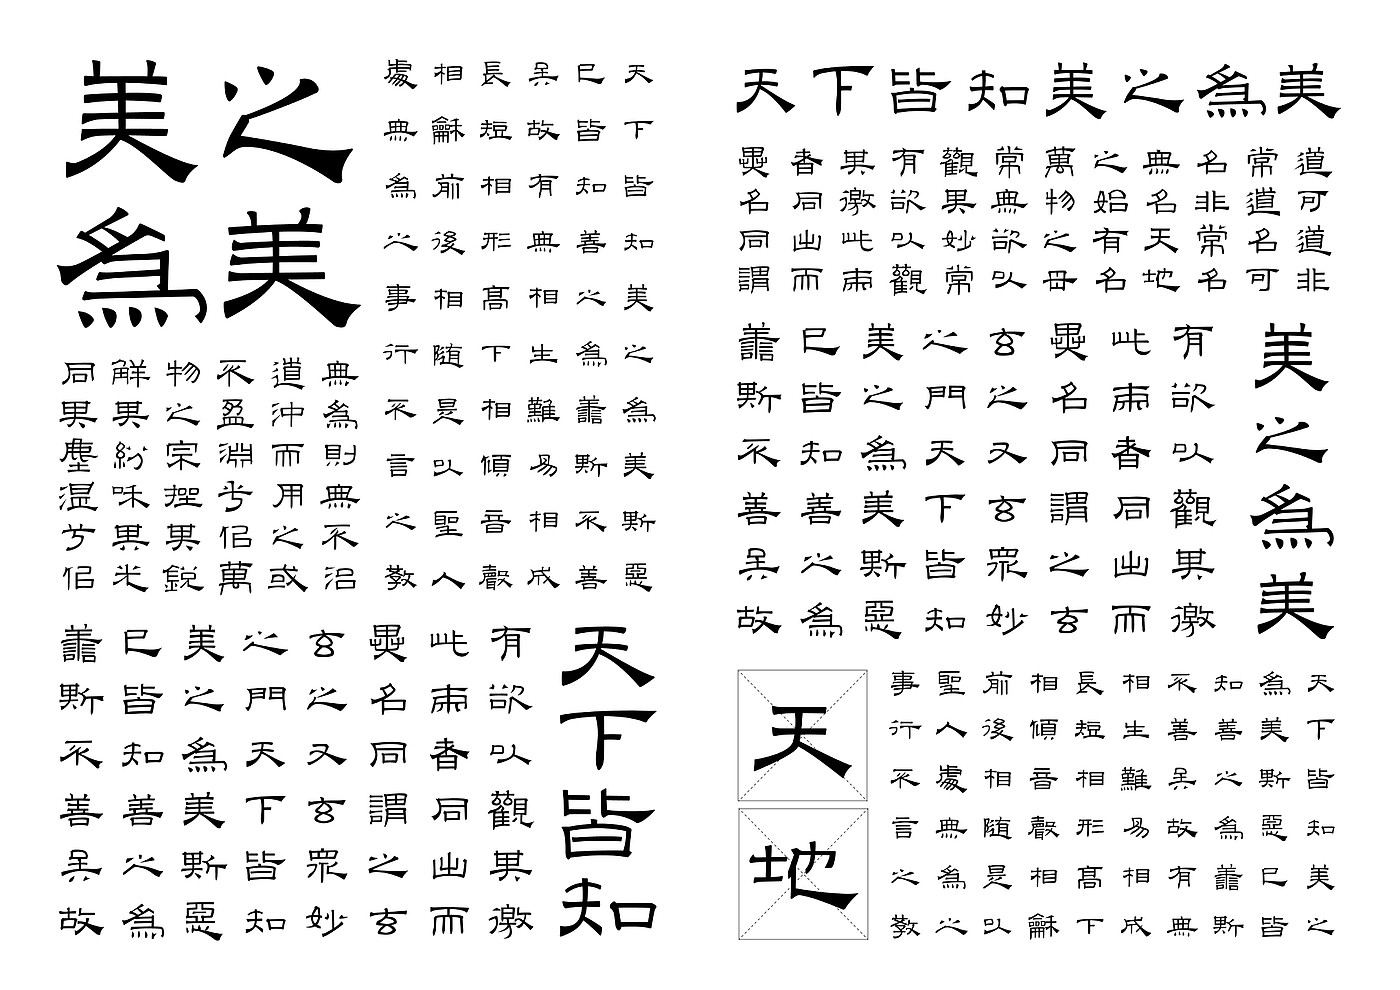 美之
為美
天下皆知美之為美斯惡
已皆知善之為譱斯不善
矣故有無相生難易相成
長短相形高下相傾音聲
相龢前後相隨是以聖人
處無為之事行不言之教
無為則無不治
道沖而用之或
不盈淵兮佀萬
物之宗挫其銳
解其紛和其光
同其塵湛兮佀
天下皆知
有欲以觀其徼
此兩者同出而
異名同謂之玄
玄之又玄眾妙
之門天下皆知
美之為美斯惡
已皆知善之為
譱斯不善矣故
天下皆知美之為美
道可道非
常道名可
名非常名
無名天地
之始有名
萬物之母
常無欲以
觀其妙常
有欲以觀
其徼此兩
者同出而
異名同謂
美之為美
有欲以觀其徼
此兩者同出而
異名同謂之玄
玄之又玄眾妙
之門天下皆知
美之為美斯惡
已皆知善之為
譱斯不善矣故
天
地
天下皆知美之
為美斯惡已皆
知善之為譱斯
不善矣故有無
相生難易相成
長短相形高下
相傾音聲相龢
前後相隨是以
聖人處無為之
事行不言之教